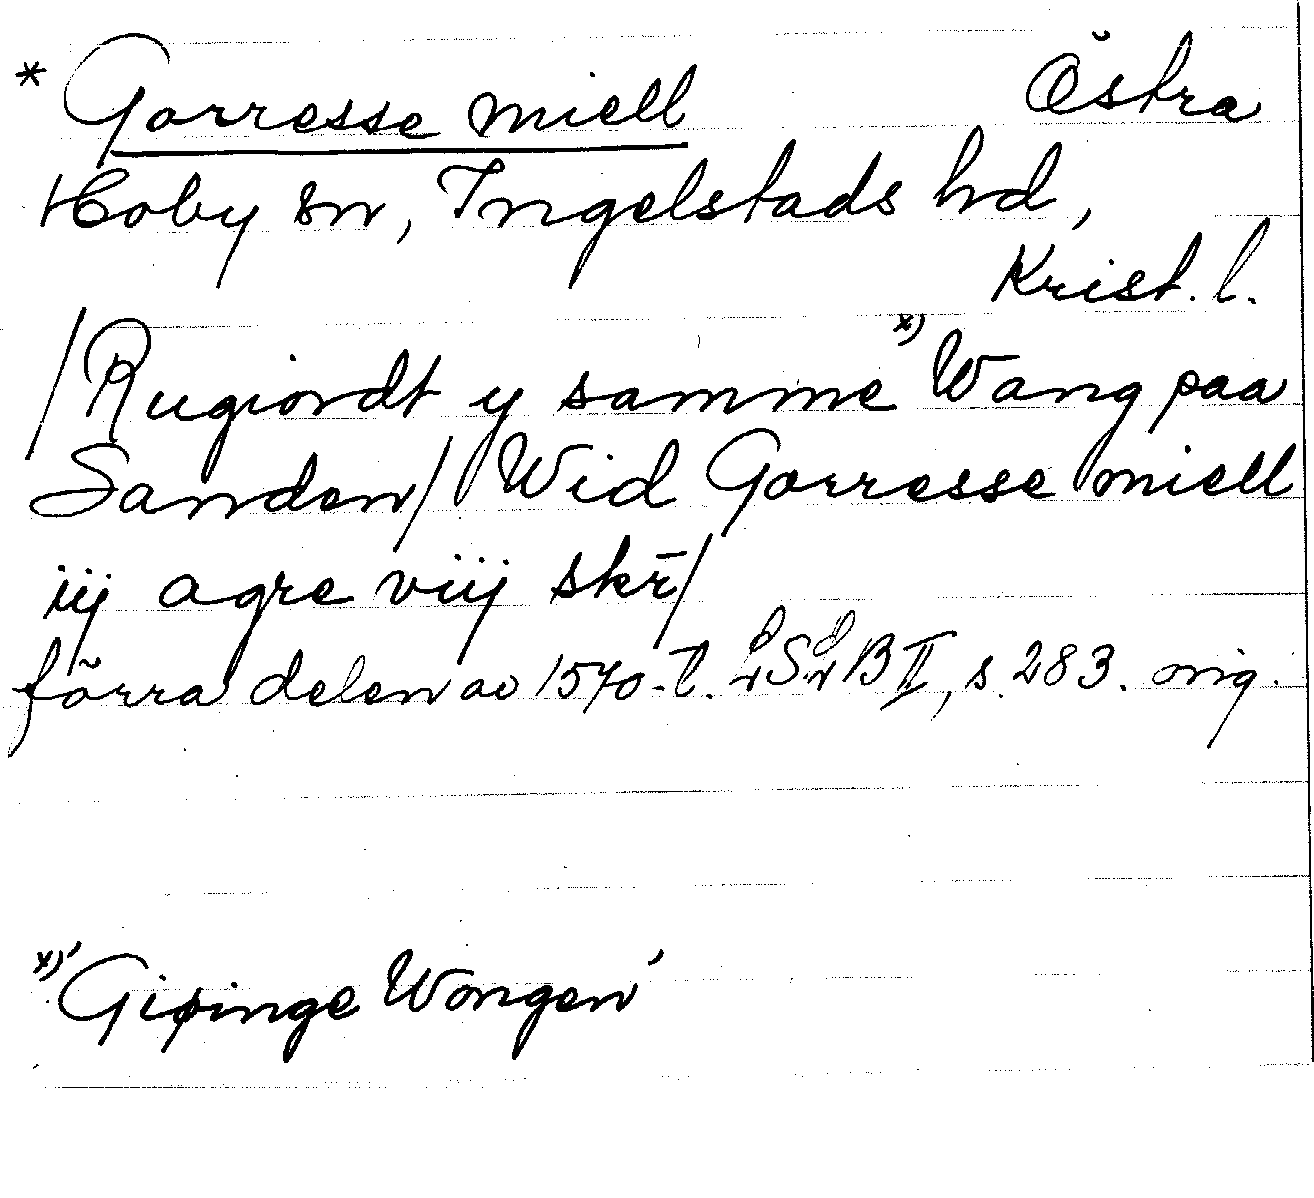 * Gorresse miell Östra
Hoby sn, Ingelstads hd,
Krist. l.
/Rugiordt y samme x) Wang paa
Sanden/ Wid Gorresse miell
iij agre viij skr̄/
förra delen av 1570-t. LSLB II, s. 283. orig.
x) 'Gipinge Wongen'